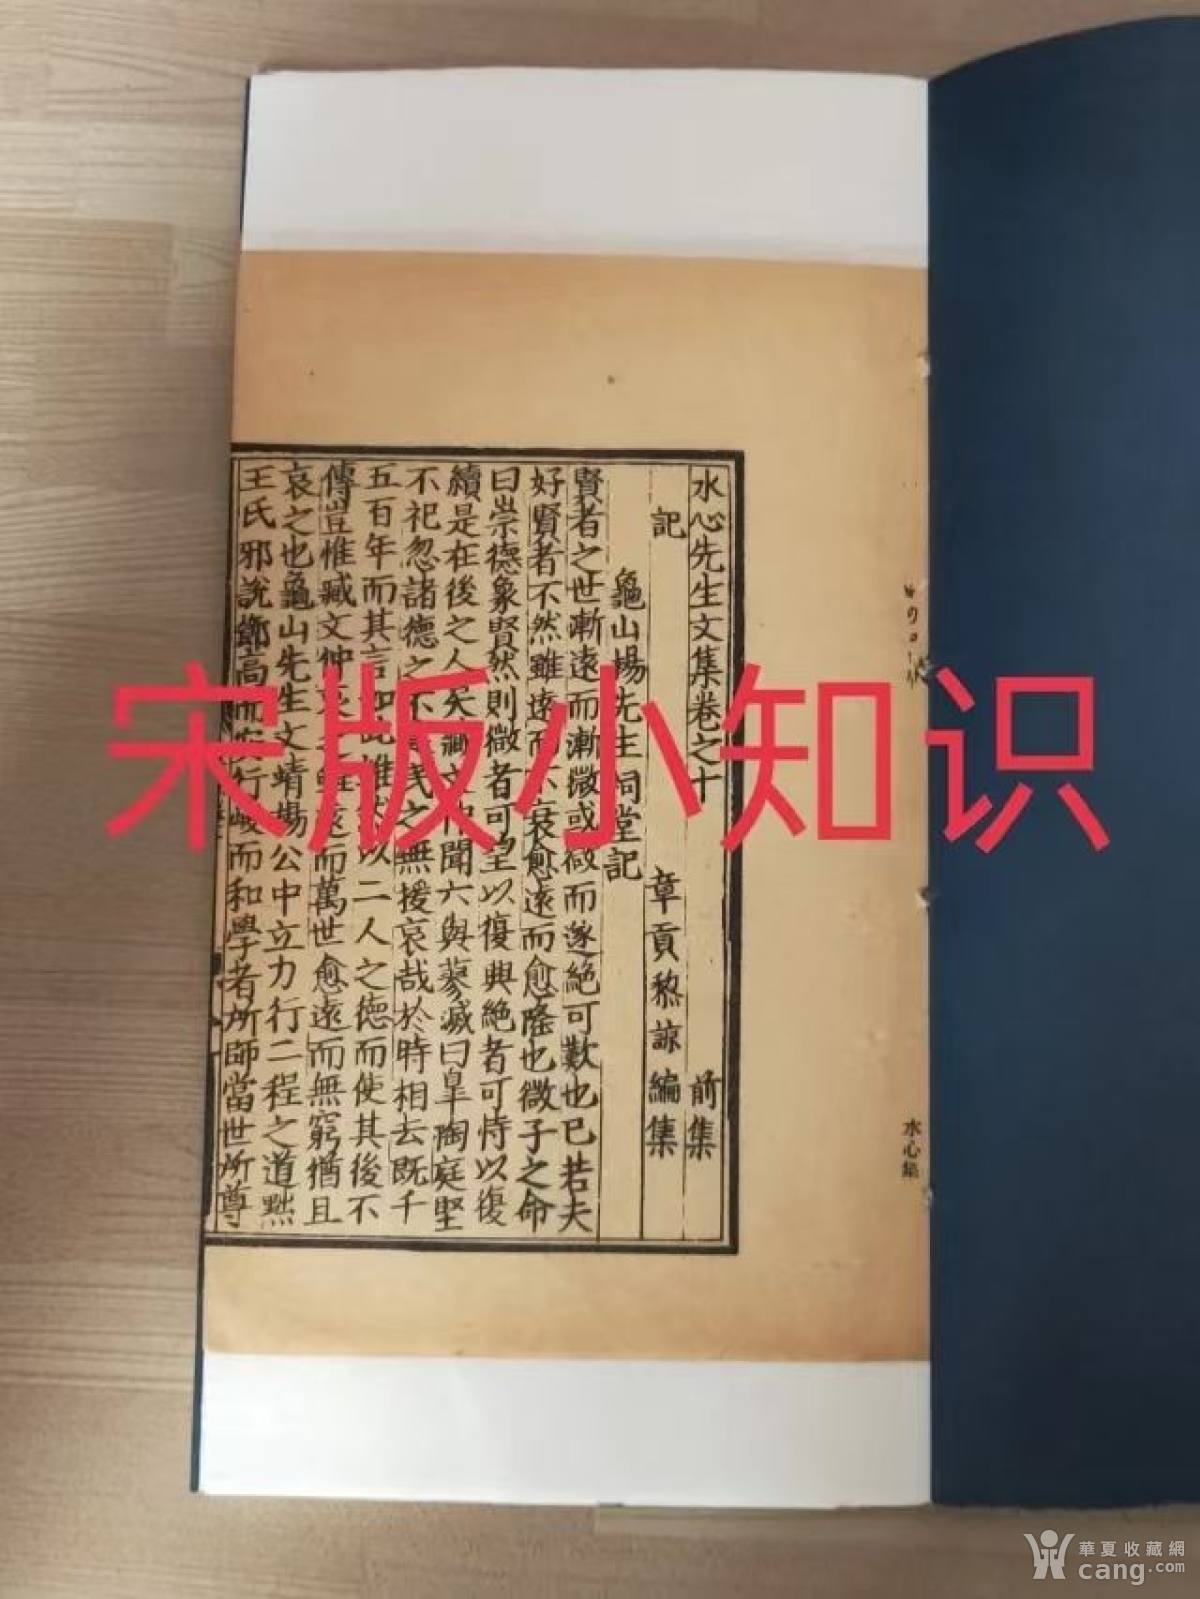 宋版小知识
水心集
水心先生文集卷之十 前集
記 章貢黎諒編集
龜山楊先生祠堂記
賢者之世漸遠而漸微或微而遂絕可歎也已若夫
好賢者不然雖遠而不衰愈遠而愈隆也微子之命
曰崇德象賢然則微者可望以復興絕者可恃以復
續是在後之人矣臧文仲聞六與蓼滅曰皐陶庭堅
不祀忽諸德之不民之無援哀哉於時相去既千
五百年而其言如此惟以二人之德而使其後不
傳豈惟臧文仲遠而萬世愈遠而無窮猶且
哀之也龜山先生文靖楊公中立力行二程之道黜
王氏邪說節高而行峻而和學者所師當世所尊
華夏收藏網
cang.com